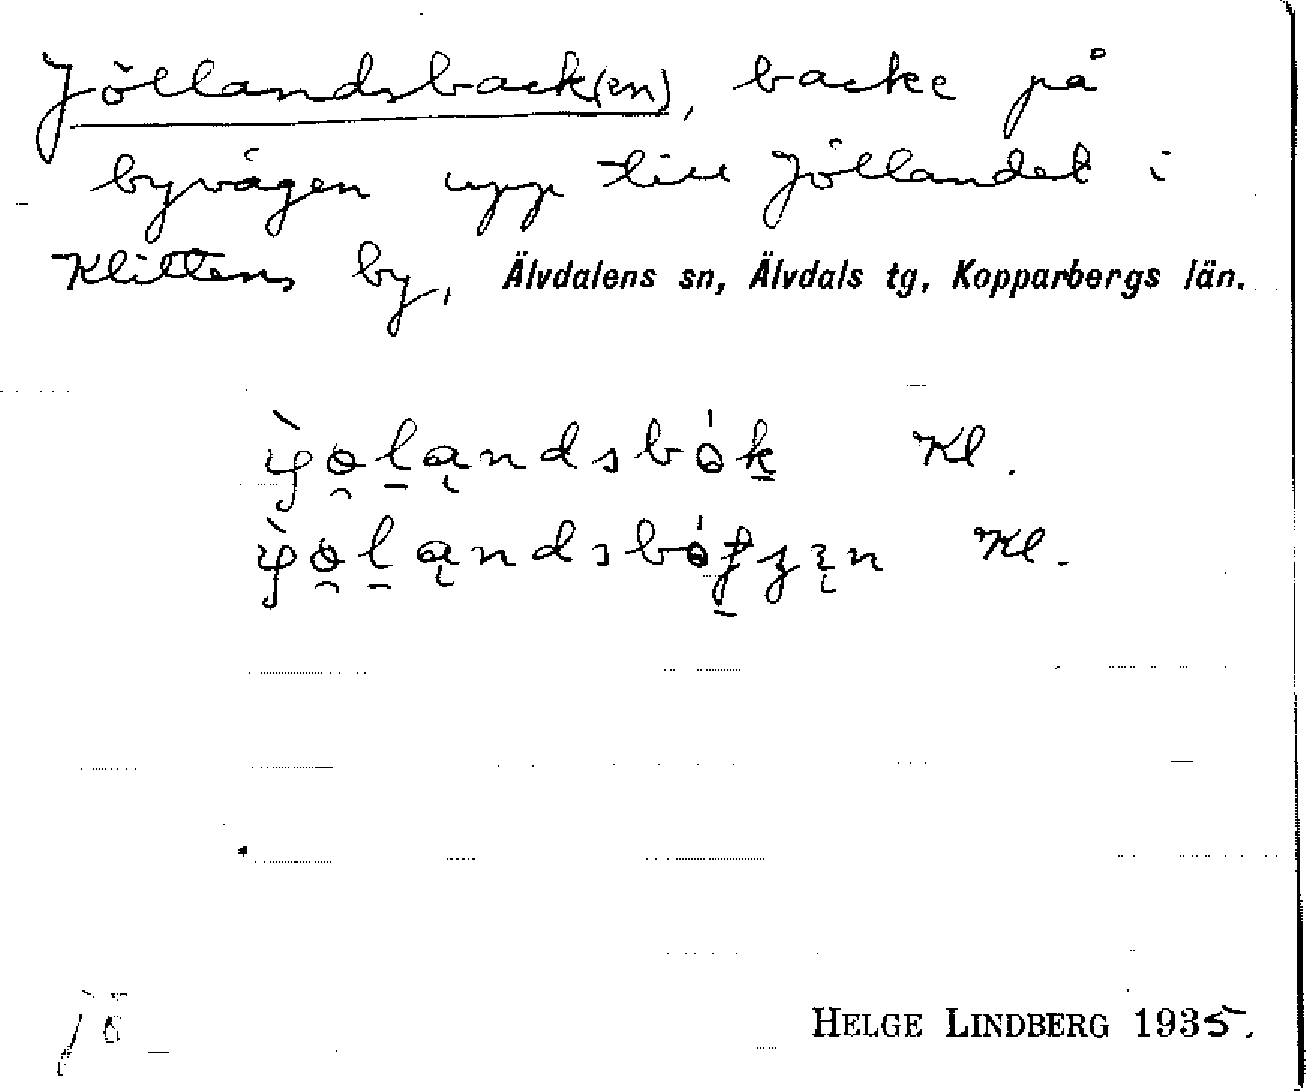 Jöllandsback(en), backe på
byvägen upp till Jöllandet i
Klittens by, Älvdalens sn, Älvdals tg, Kopparbergs län.
Kl.
Kl.
HELGE LINDBERG 1935.